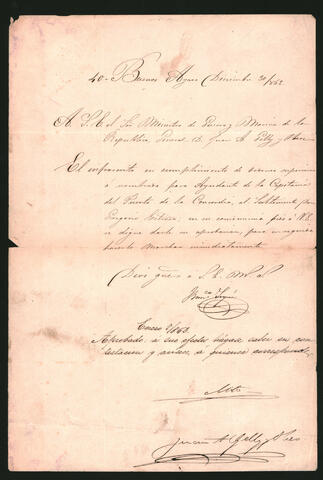 40- Buenos Ayres Diciembre 30/862
A. S. E. el Sor Ministro de Guerra y Marina de la
República, General D. Juan A. Gelly y Obes
El infrascrito en cumplimiento de ordenes superiores
a nombrado para Ayudante de la Capitania
del Puerto de la Concordia, al Subteniente Don
Eugenio en su consecuencia pido á V.E.
se digne darle su aprobacion, para en seguida
hacerlo Marchar inmediatamente
Dios gue á S. E. M. a
Enero 2/863.
Aprobado: a sus efectos hágase saber en con
testacion y avísese a quienes corresponde.
Mitre
Juan A Gelly y Obes